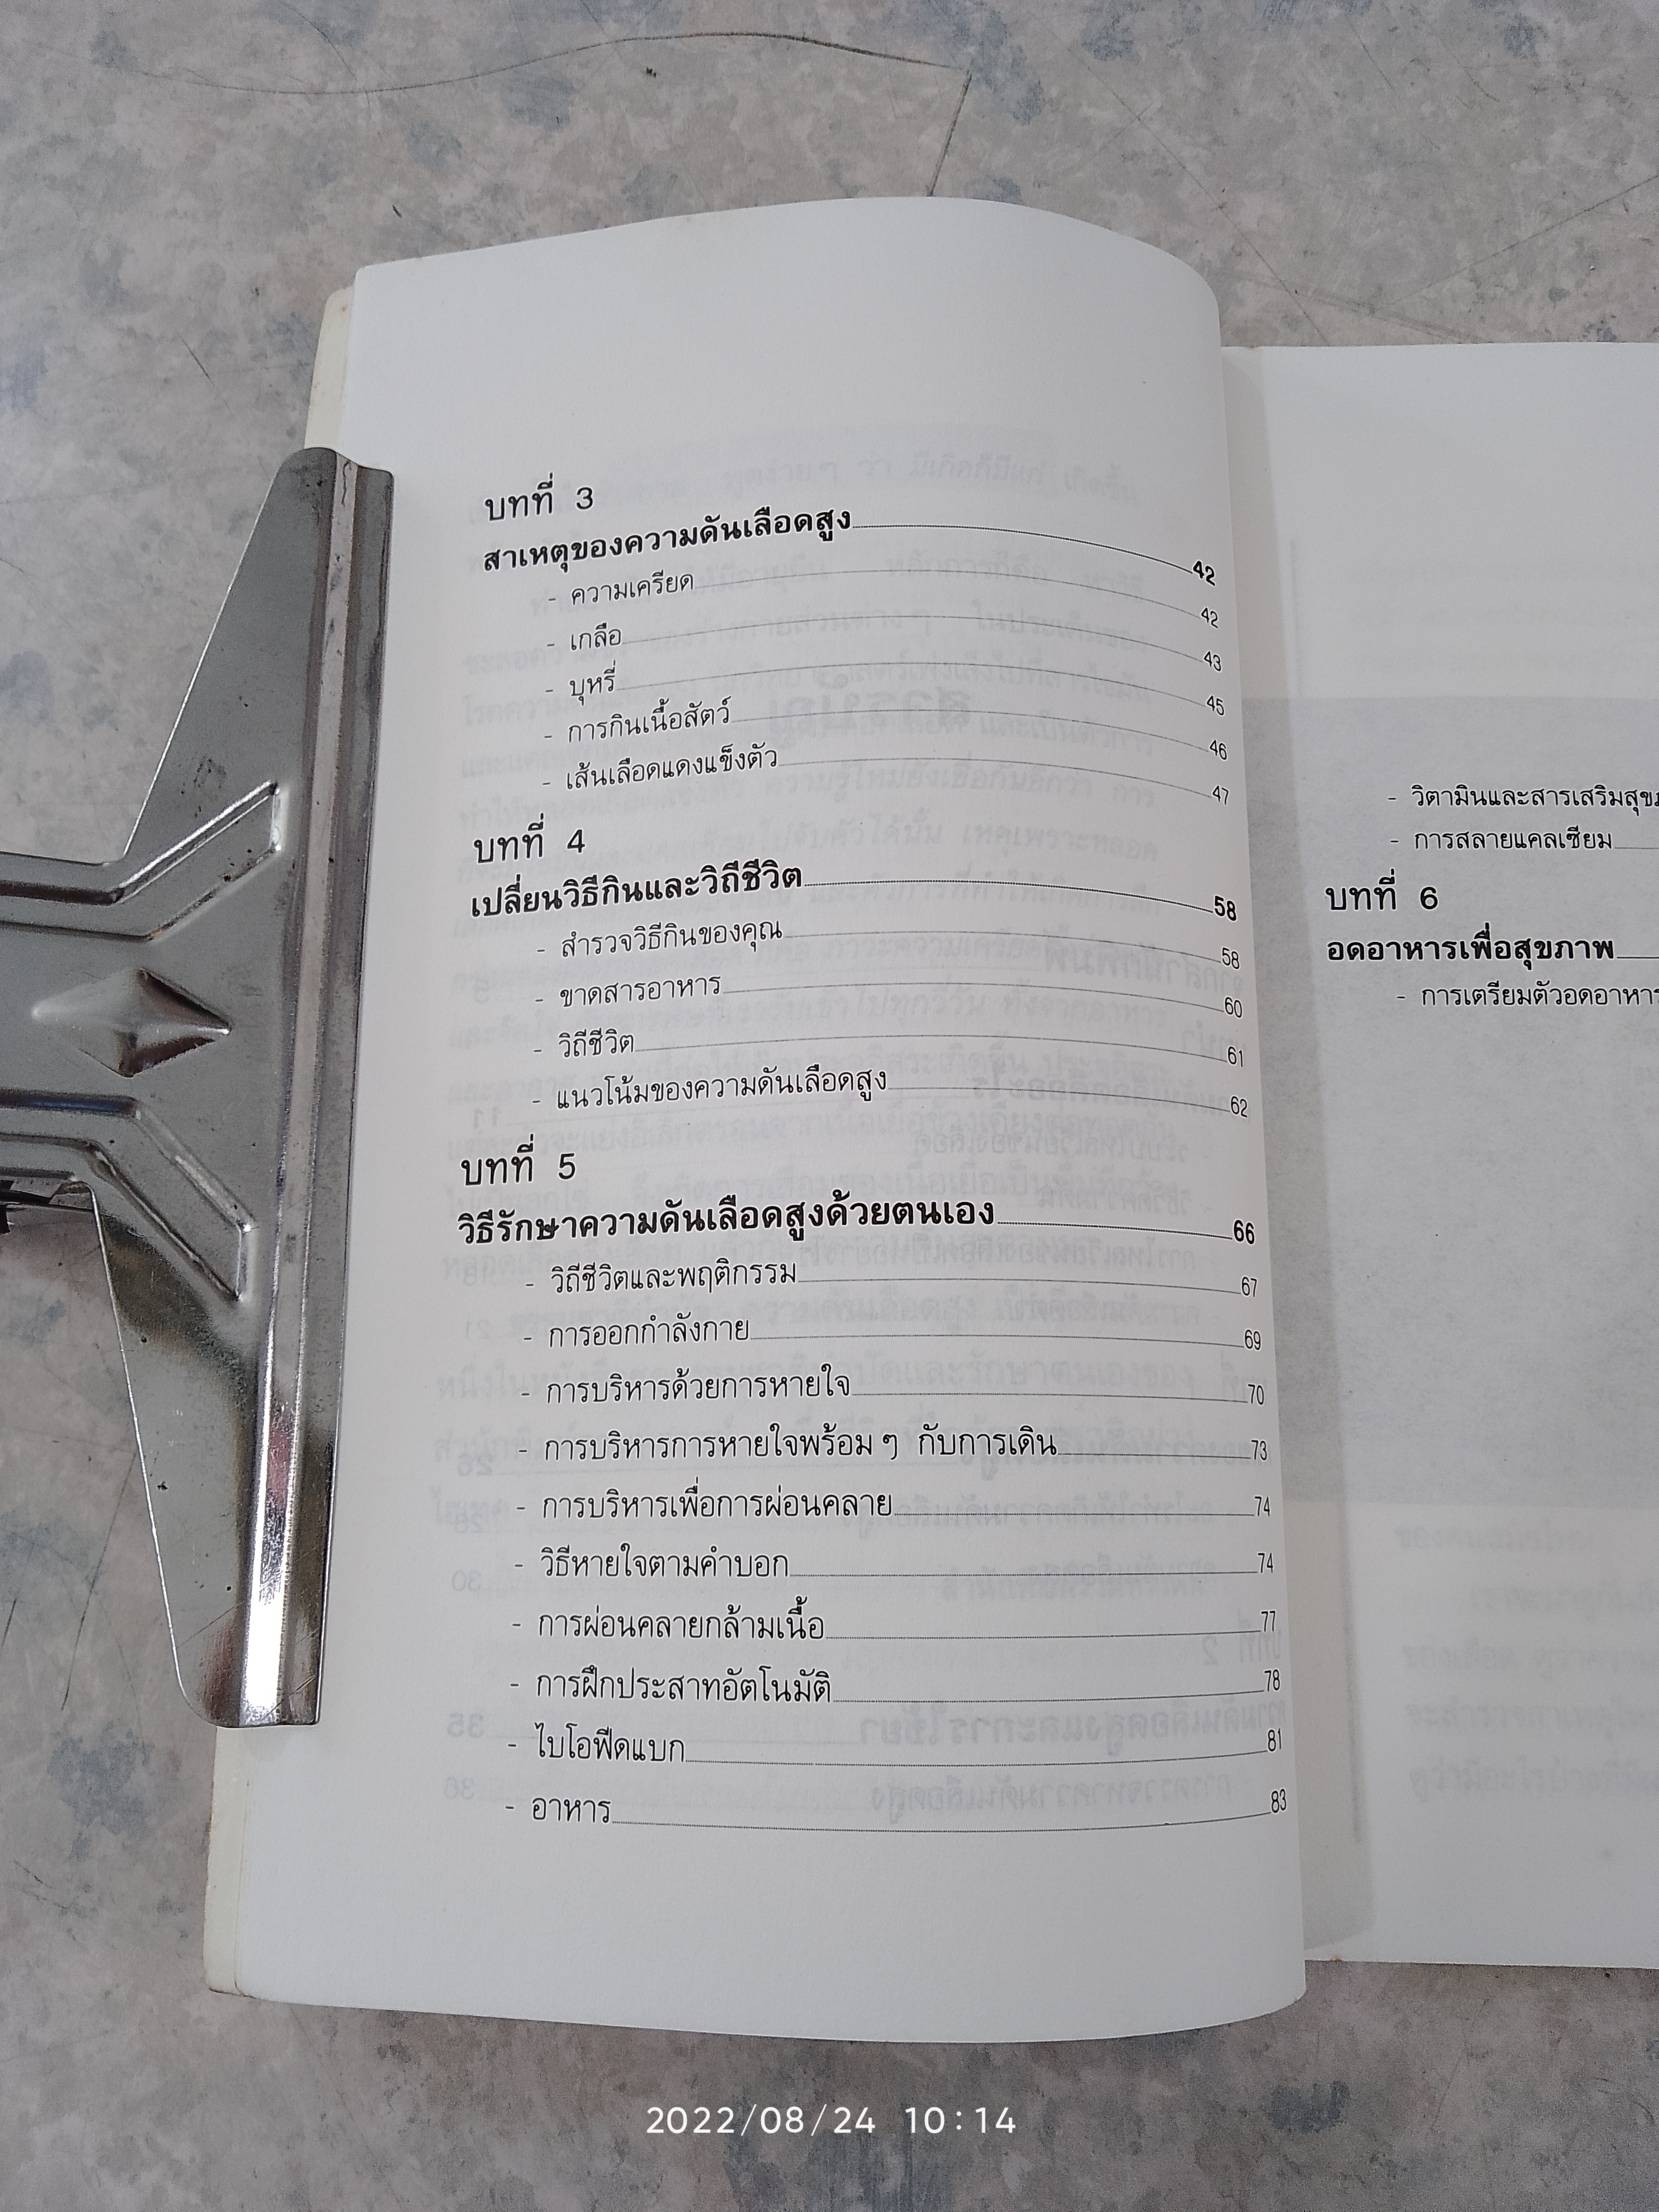 บทที่ 3
สาเหตุของความดันเลือดสูง 42
- ความเครียด 42
- เกลือ 43
- บุหรี่ 45
- การกินเนื้อสัตว์ 46
- เส้นเลือดแดงแข็งตัว 47
บทที่ 4
เปลี่ยนวิธีกินและวิถีชีวิต 58
- สำรวจวิธีกินของคุณ 58
- ขาดสารอาหาร 60
- วิถีชีวิต 61
- แนวโน้มของความดันเลือดสูง 62
บทที่ 5
วิธีรักษาความดันเลือดสูงด้วยตนเอง 66
- วิถีชีวิตและพฤติกรรม 67
- การออกกำลังกาย 69
- การบริหารด้วยการหายใจ 70
- การบริหารการหายใจพร้อม ๆ กับการเดิน 73
- การบริหารเพื่อการผ่อนคลาย 74
- วิธีหายใจตามคำบอก 74
- การผ่อนคลายกล้ามเนื้อ 77
- การฝึกประสาทอัตโนมัติ 78
- ไบโอฟีดแบก 81
- อาหาร 83
- วิตามินและสารเสริมสุข
- การสลายแคลเซียม
บทที่ 6
อดอาหารเพื่อสุขภาพ
- การเตรียมตัวอดอาหาร
2022/08/24 10:14